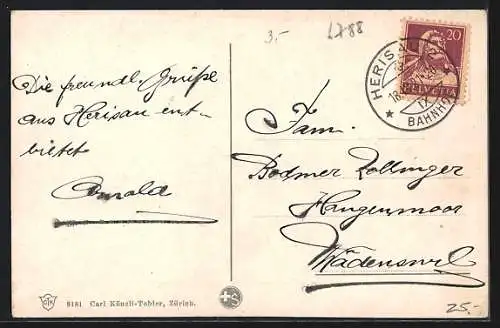 3.-
1788
20
HELVETIA
HERISAU
18. IX
BAHNHOF
Die freundl. Grüße
aus Herisau ent-
bietet
Arnold
Fam.
Bodmer Zollinger
Hangenmoor
Wädenswil
25.-
8181 Carl Künzli-Tobler, Zürich.